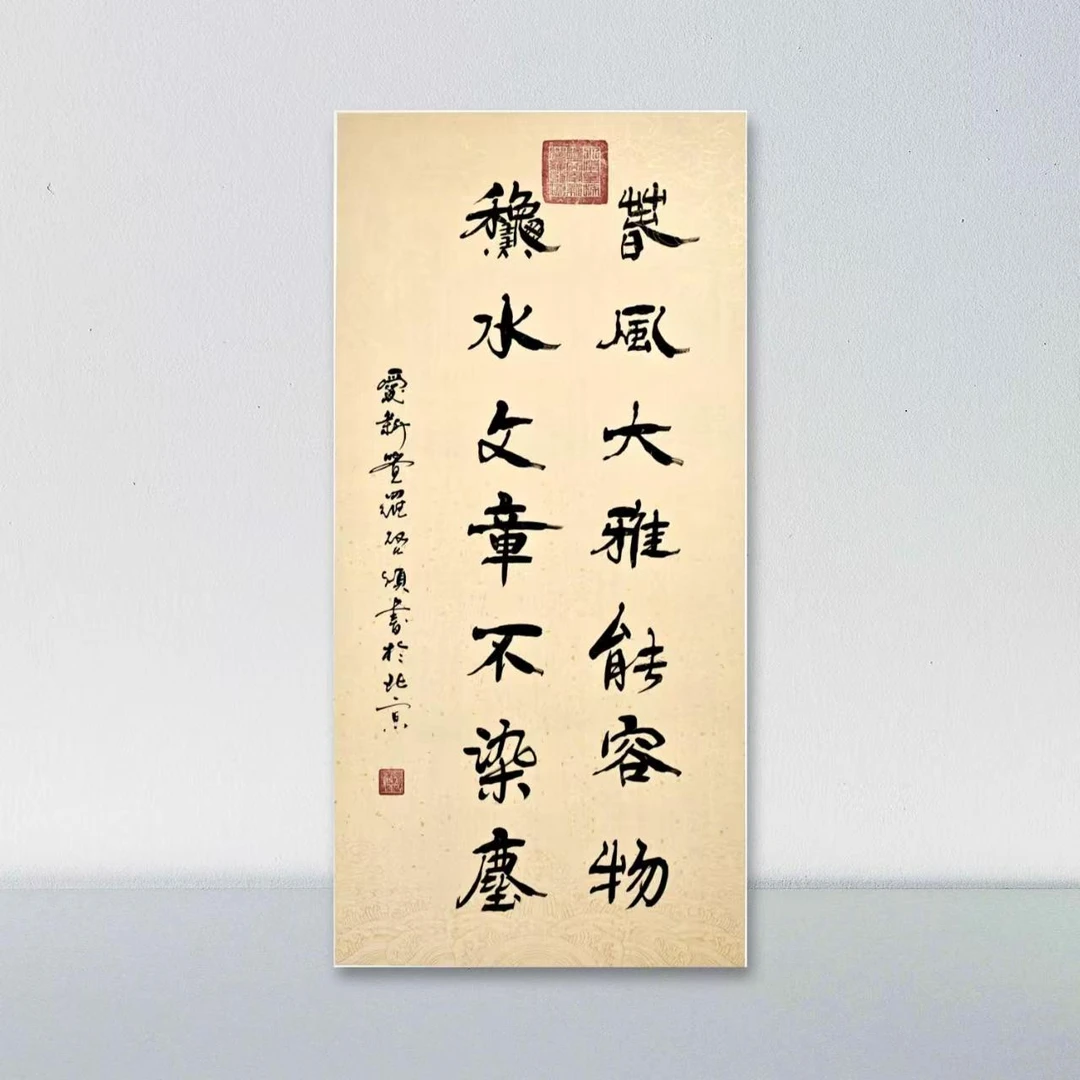 萅風大雅能容物
龝水文章不染塵
愛新覺羅 書於北京